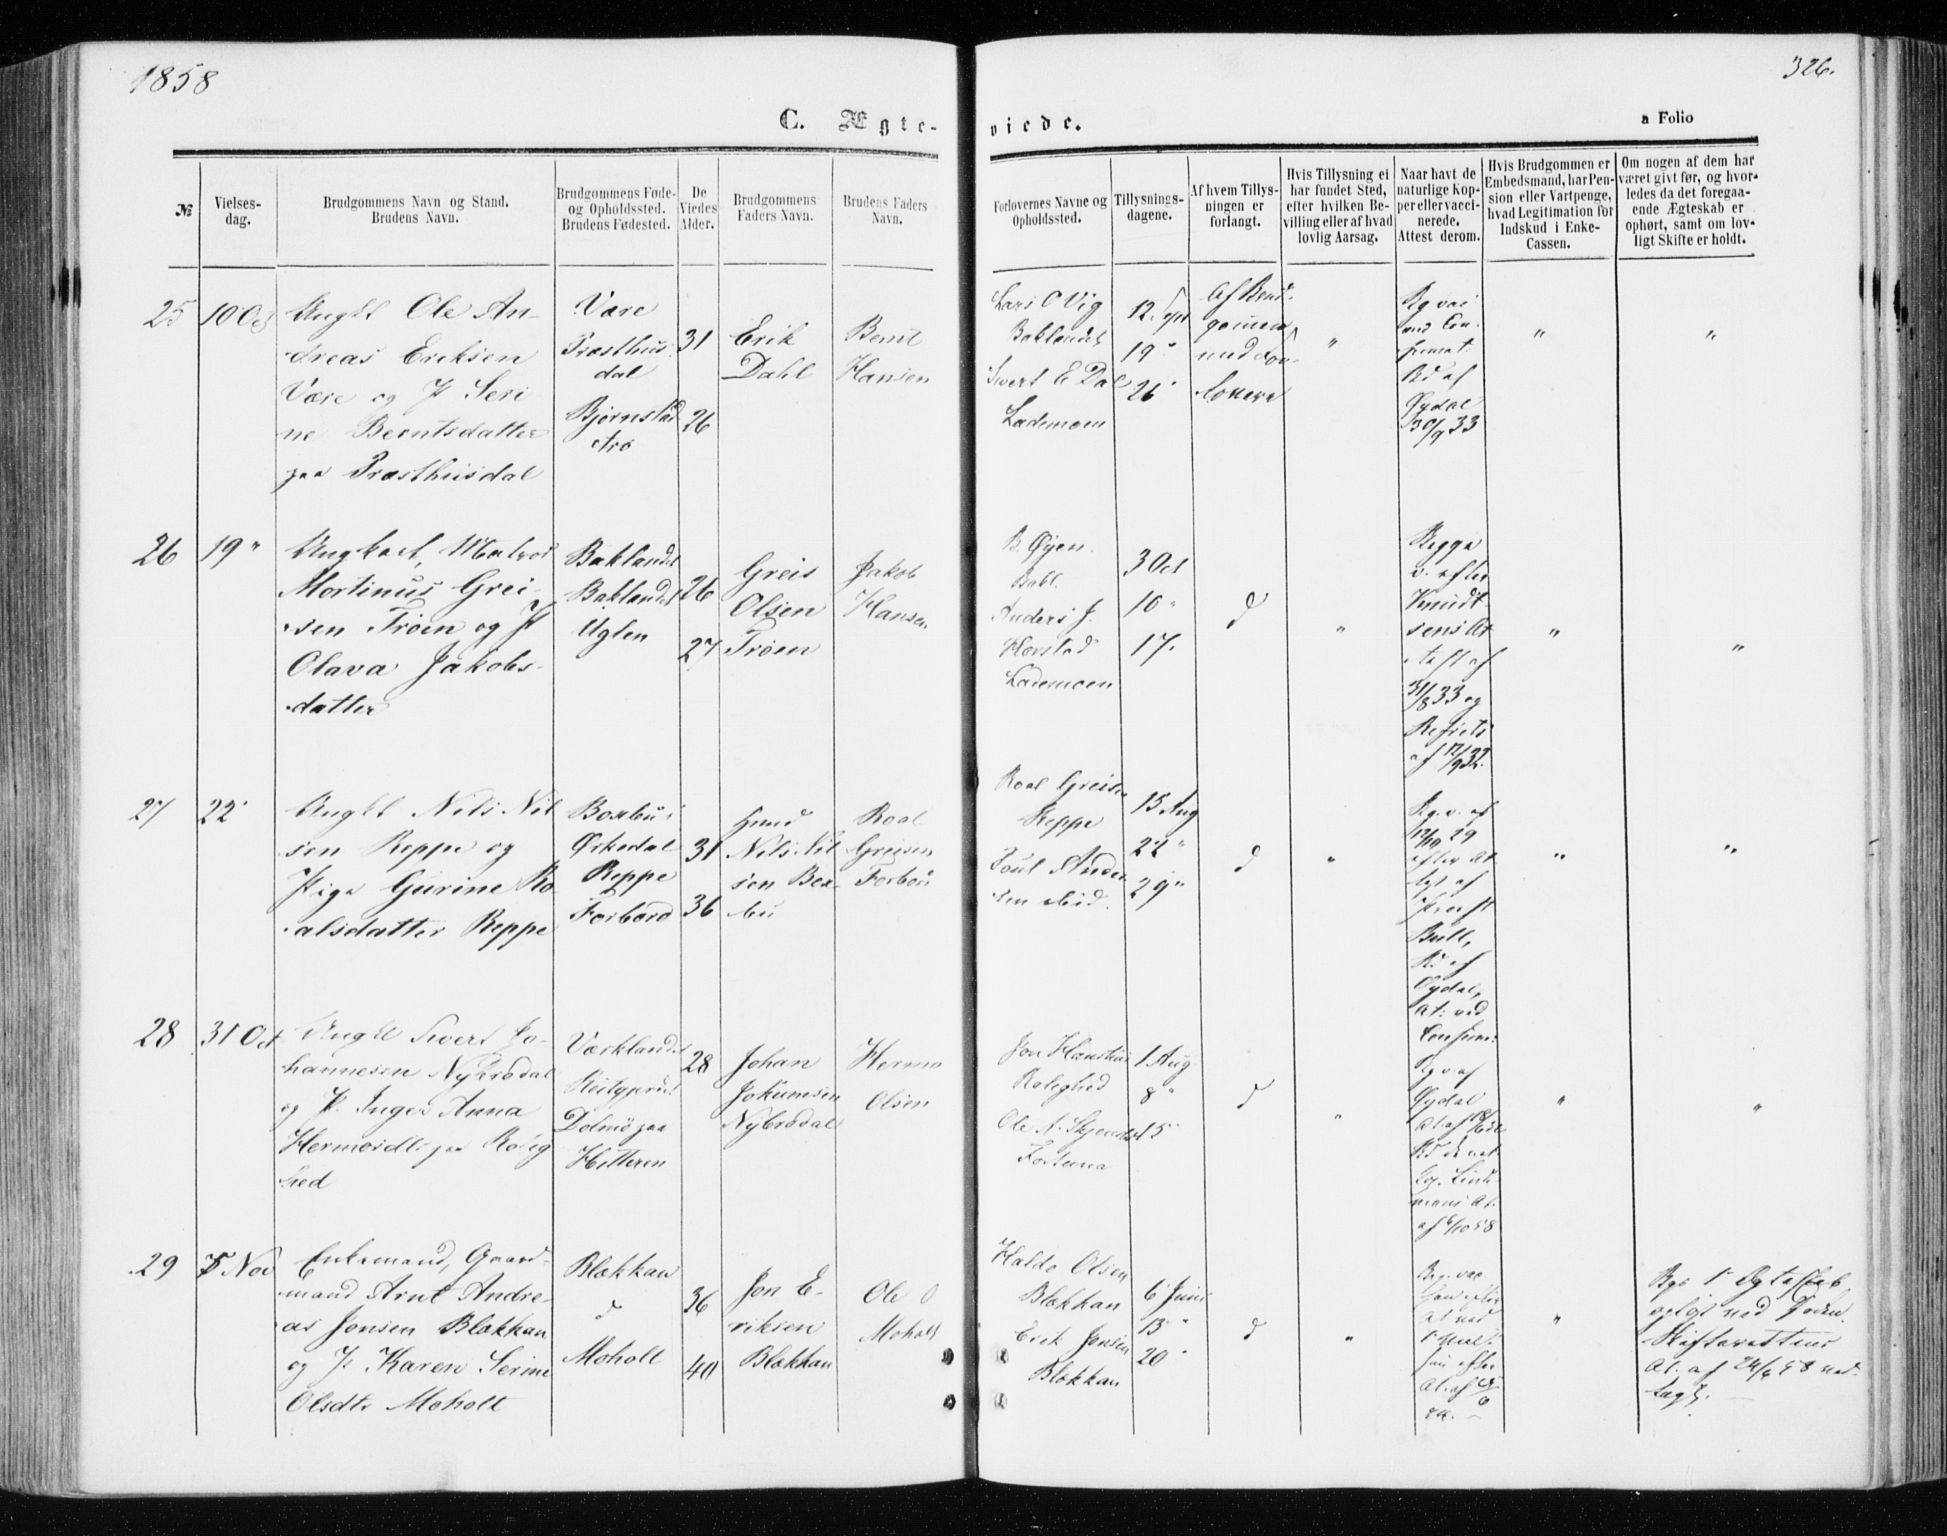 1858
326.
C. Ægte-
viede.
a Folio
№
Vielses-
dag.
Brudgommens Navn og Stand.
Brudens Navn.
Brudgommens Føde-
og Opholdssted.
Brudens Fødested.
De
Viedes
Alder.
Brudgommens
Faders Navn.
Brudens Faders
Navn.
Forlovernes Navne og
Opholdssted.
Tillysnings-
dagene.
Af hvem Tillys-
ningen er
forlangt.
Hvis Tillysning ei
har fundet Sted,
efter hvilken Be-
villing eller af hvad
lovlig Aarsag.
Naar havt de
naturlige Kop-
per eller vacci-
nerede.
Attest derom.
Hvis Brudgommen er
Embedsmand, har Pen-
sion eller Vartpenge,
hvad Legitimation for
Indskud i Enke-
Cassen.
Om nogen af dem har
været givt før, og hvor-
ledes da det foregaa-
ende Ægteskab er
ophørt, samt om lov-
ligt Skifte er holdt.
25
10 Oc
Ungkl Ole An-
dreas Eriksen
Være og P. Seri
ne Berntsdatter
paa Præsthusdal
Være
Præsthus
dal
Bjørnstad
31
26
Erik
Dahl
Bernt
Hansen
Lars O Vig
Baklandet
Sivert E Dal
Lademoen
12 Sept
19 "
26 "
Af Brud-
gommen
med For-
lovere
"
Bg vac
Bd af
Øydal
30/9 33
"
"
26
19 "
Ungkarl, Matros
Mortinus Grei-
sen Trøen og P
Olava Jakobs-
datter
Baklandet
Baklandet
Uglen
26
27
Greis
Olsen
Trøen
Jakob
Hansen
B. Øyen.
Bakl.
Anders J.
Lademoen
3 Oct
10 "
17.
d
"
Begge
v. efter
Knudt-
sens At
test af
31/8 33 og
"
"
27
22 "
Ungkl Nils Nil
sen Reppe og
Piga Gurine Ro
alsdatter Reppe
Ørkedal
Reppe
Forbord
31
36
Nils Nil
sen
Roal
Greisen
Forbord
Roal Greisen
Reppe
Poul Ander
sen ibid.
15 Aug
22 "
29 "
d
"
Bg. v. af
efter At
af
Præst
Bull,
Bd af
Øydal,
At: ved
"
"
28
31 Oct
Ungkl Sivert Jo-
hannesen Nybrodal
og P. Inger Anna
Hermosdtr paa Roleg
hed
Dolmø paa
Hitteren
28
Johan
Jokumsen
Nybrodal
Hermo
Olsen
Roleghed
Fortuna
1 Aug
8 "
15 "
d
"
Bg v. af
Øydal
"
"
29
Nov
Enkemand, Gaard-
mand Arnt Andre-
as Jonsen Blækkan
og P. Karen Serine
Olsdtr Moholt
Blækkan
d
Moholt
36
40
Jon E-
riksen
Blækkan
Ole O
Moholt
Haldo Olsen
Blækkan
Erik Jonsen
Blækkan
6 Juni
13 "
20 "
d
"
"